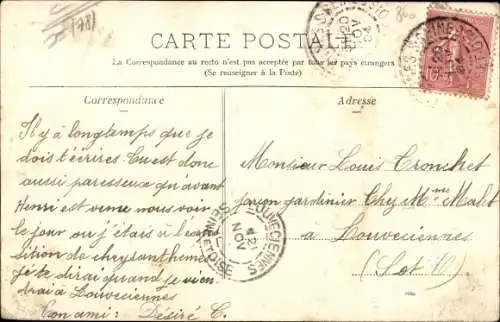 (78)
800
CARTE POSTALE
La Correspondance au recto n'est pas acceptée par tous les pays étrangers
(Se renseigner à la Poste)
Correspondance
Adresse
Il y a longtemps que je
dois t'écrires. Tu est donc
aussi paresseux qu'avant
Henri est venu nous voir
le jour ou j'étais à l'expo
sition de chrysanthèmes
Je te dirai quand je vien
drai à Louveciennes
Ton ami: Désiré C.
Monsieur Louis Tronchet
garçon jardinier Chez Mme Malet
à Louveciennes
(S et O)
LOUVECIENNES
SEINE ET OISE
21
NOV